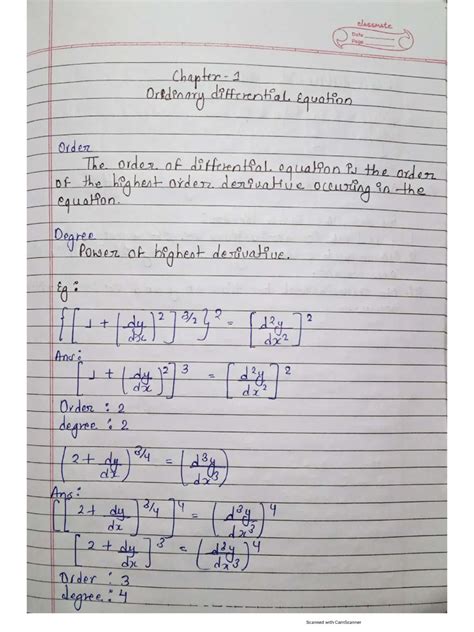 classmate
Date
Page
Chapter-1
Ordinary differential Equation
Order
The order of differential equation is the order
of the highest order derivative occuring in the
equation.
Degree
Power of highest derivative.
Eg:
{[1 + (dy/dx)^2]^3/2}^2 = [d^2y/dx^2]^2
Ans:
[1 + (dy/dx)^2]^3 = [d^2y/dx^2]^2
Order : 2
degree : 2
(2 + dy/dx)^3/4 = (d^3y/dx^3)
Ans:
[[2 + dy/dx]^3/4]^4 = (d^3y/dx^3)^4
[2 + dy/dx]^3 = (d^3y/dx^3)^4
Order : 3
degree : 4
Scanned with CamScanner